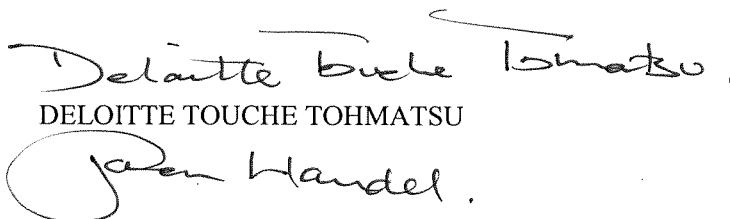 Deloitte Touche Tohmatsu.
DELOITTE TOUCHE TOHMATSU
Handel.